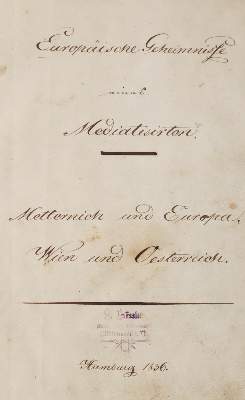 Europäische Geheimnisse
eines
Mediatisirten.
Metternich und Europa.
Wien und Oesterreich.
Hamburg 1836.